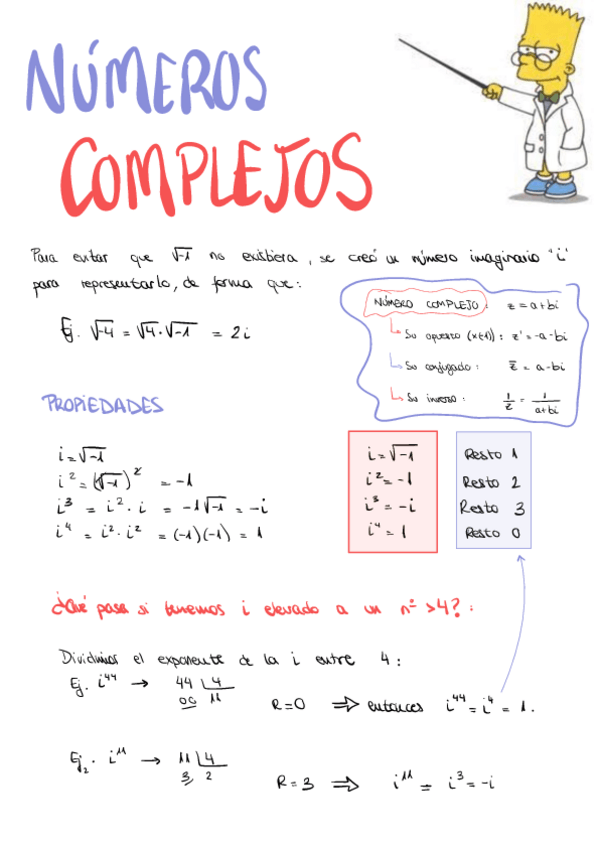 NÚMEROS
COMPLEJOS
Para evitar que √-1 no existiera, se creó un número imaginario "i"
para representarlo, de forma que:
Ej. √-4 = √4·√-1 = 2i
NÚMERO COMPLEJO: z = a+bi
Su opuesto (x(-1)): z' = -a-bi
Su conjugado: z̅ = a-bi
Su inverso: 1/z = 1/(a+bi)
PROPIEDADES
i = √-1
i² = (√-1)² = -1
i³ = i²·i = -1√-1 = -i
i⁴ = i²·i² = (-1)(-1) = 1
i = √-1
i² = -1
i³ = -i
i⁴ = 1
Resto 1
Resto 2
Resto 3
Resto 0
¿Qué pasa si tenemos i elevado a un nº >4?:
Dividimos el exponente de la i entre 4:
Ej. i⁴⁴ → 44 | 4
00 11
R=0 ⇒ entonces i⁴⁴ = i⁴ = 1.
Ej₂. i¹¹ → 11 | 4
3 2
R=3 ⇒ i¹¹ = i³ = -i